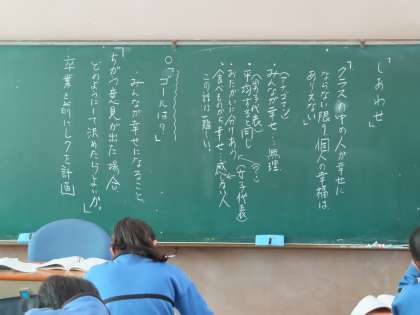 「しあわせ」
「クラスの中の人が幸せに
ならない限り個人の幸福は
ありえない」
・みんなが幸せ…無理
（男子代表）（？）
・平均すると同じ
・おたがいに分けあう（女子代表）
・食べものに幸せ…感じない人
この話は難しい。
○「ゴールは？」
みんなが幸せになること、
「ちがう意見が出た場合
どのようにして決めたらよいか。」
・卒業を前にレクを計画